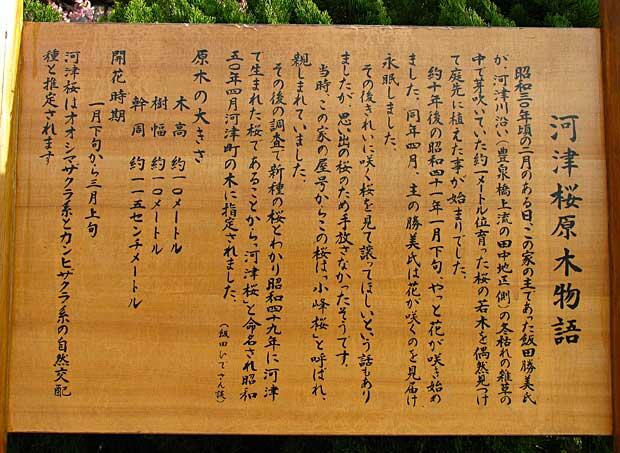 河津桜原木物語
昭和三〇年頃の二月のある日、この家の主であった飯田勝美氏
が、河津川沿い(豊泉橋上流の田中地正側)の冬枯れの雑草の
中で芽吹いていた約一メートル位育った桜の若木を偶然見つけ
て庭先に植えた事が始まりでした。
約十年後の昭和四十一年一月下旬、やっと花が咲き始め
ました。同年四月、主の勝美氏は花が咲くのを見届け
永眠しました。
その後きれいに咲く桜を見て譲ってほしいという話もあり
ましたが、思い出の桜のため手放さなかったそうです。
当時、この家の屋号からこの桜は、小峰桜」と呼ばれ、
親しまれていました。
その後の調査で新種の桜とわかり昭和四十九年に河津
で生まれた桜であることから、「河津桜」と命名され昭和
五〇年四月河津町の木に指定されました。
(飯田ひでさん談)
原木の大きさ
木高 約一〇メートル
樹幅 約一〇メートル
幹周 約一一五センチメートル
開花時期
一月下旬から三月上旬
河津桜はオオシマザクラ系とカンヒザクラ系の自然交配
種と推定されます